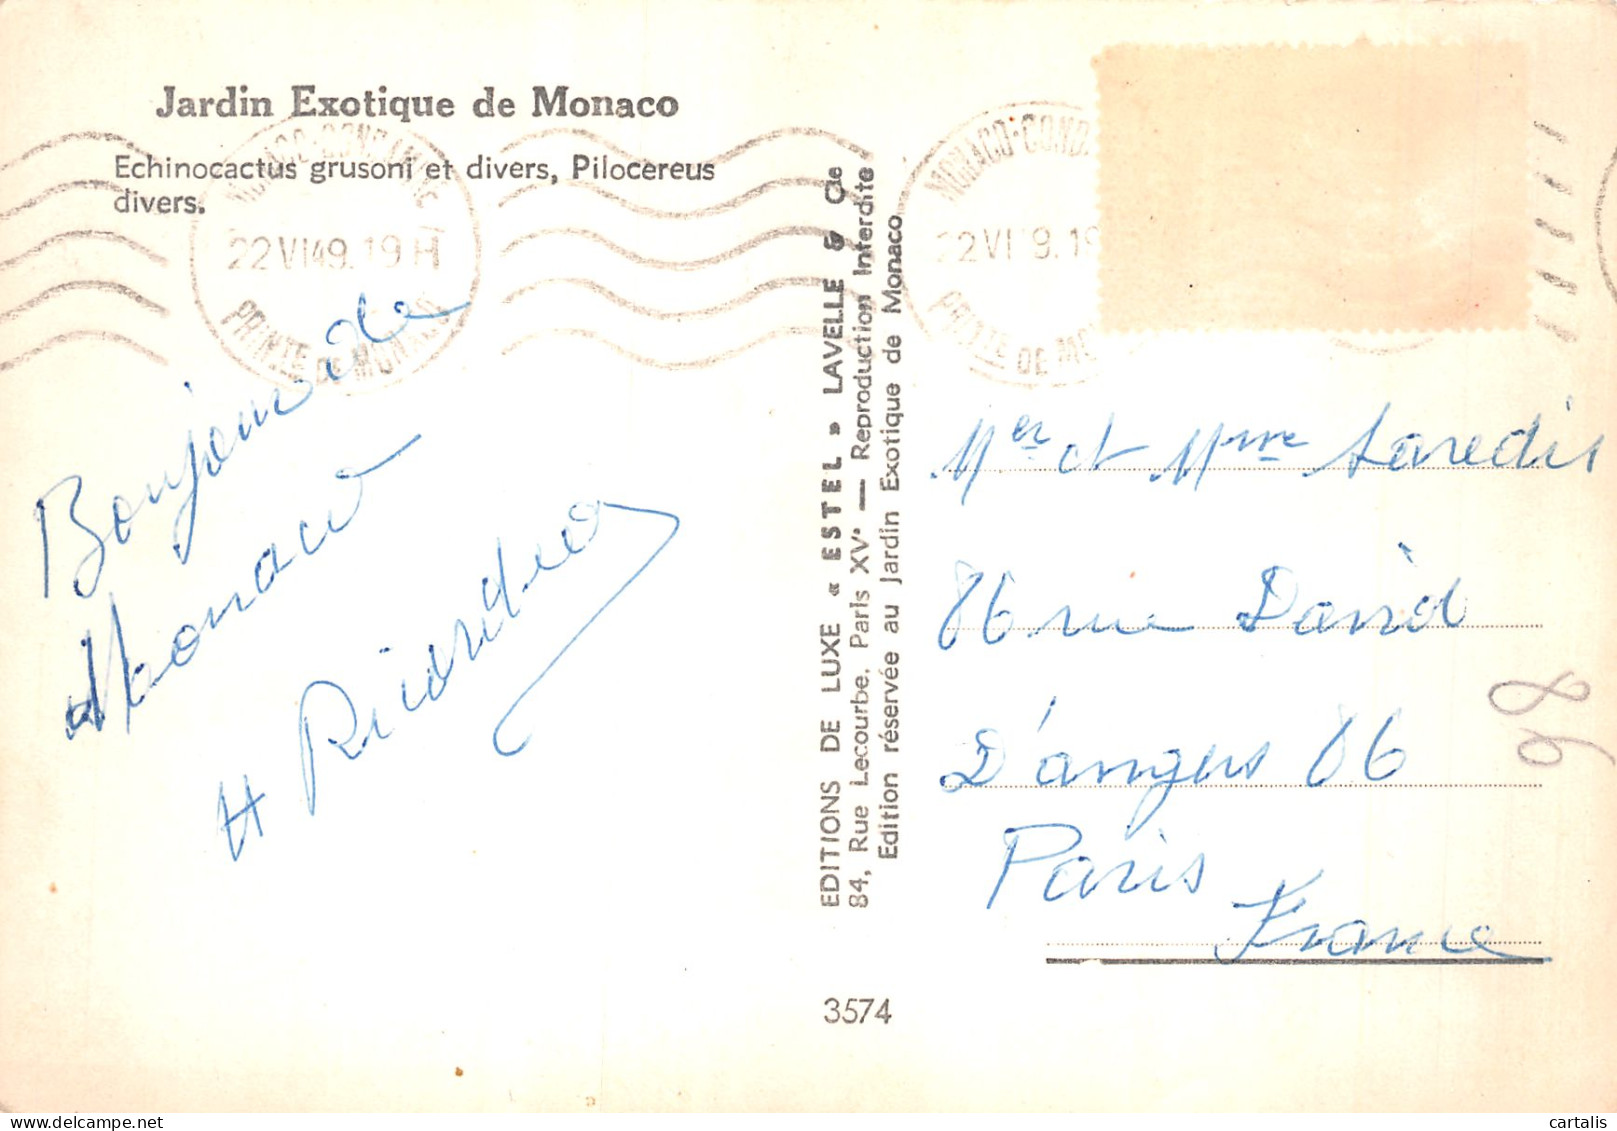 Jardin Exotique de Monaco
Echinocactus grusoni et divers, Pilocereus
divers.
MONACO-CONDAMINE
22 VI 49. 19 H
PRINTE DE MONACO
MONACO-COND
22 VI 9. 19
PRINTE DE MO
Bonjour de
Monaco
H Ricordeo
EDITIONS DE LUXE « ESTEL » LAVELLE & Cie
84, Rue Lecourbe, Paris XV• — Reproduction Interdite
Edition réservée au Jardin Exotique de Monaco
3574
Mer et Mme Saredis
86 rue David
D'angers 86
Paris
France
98
cartalis